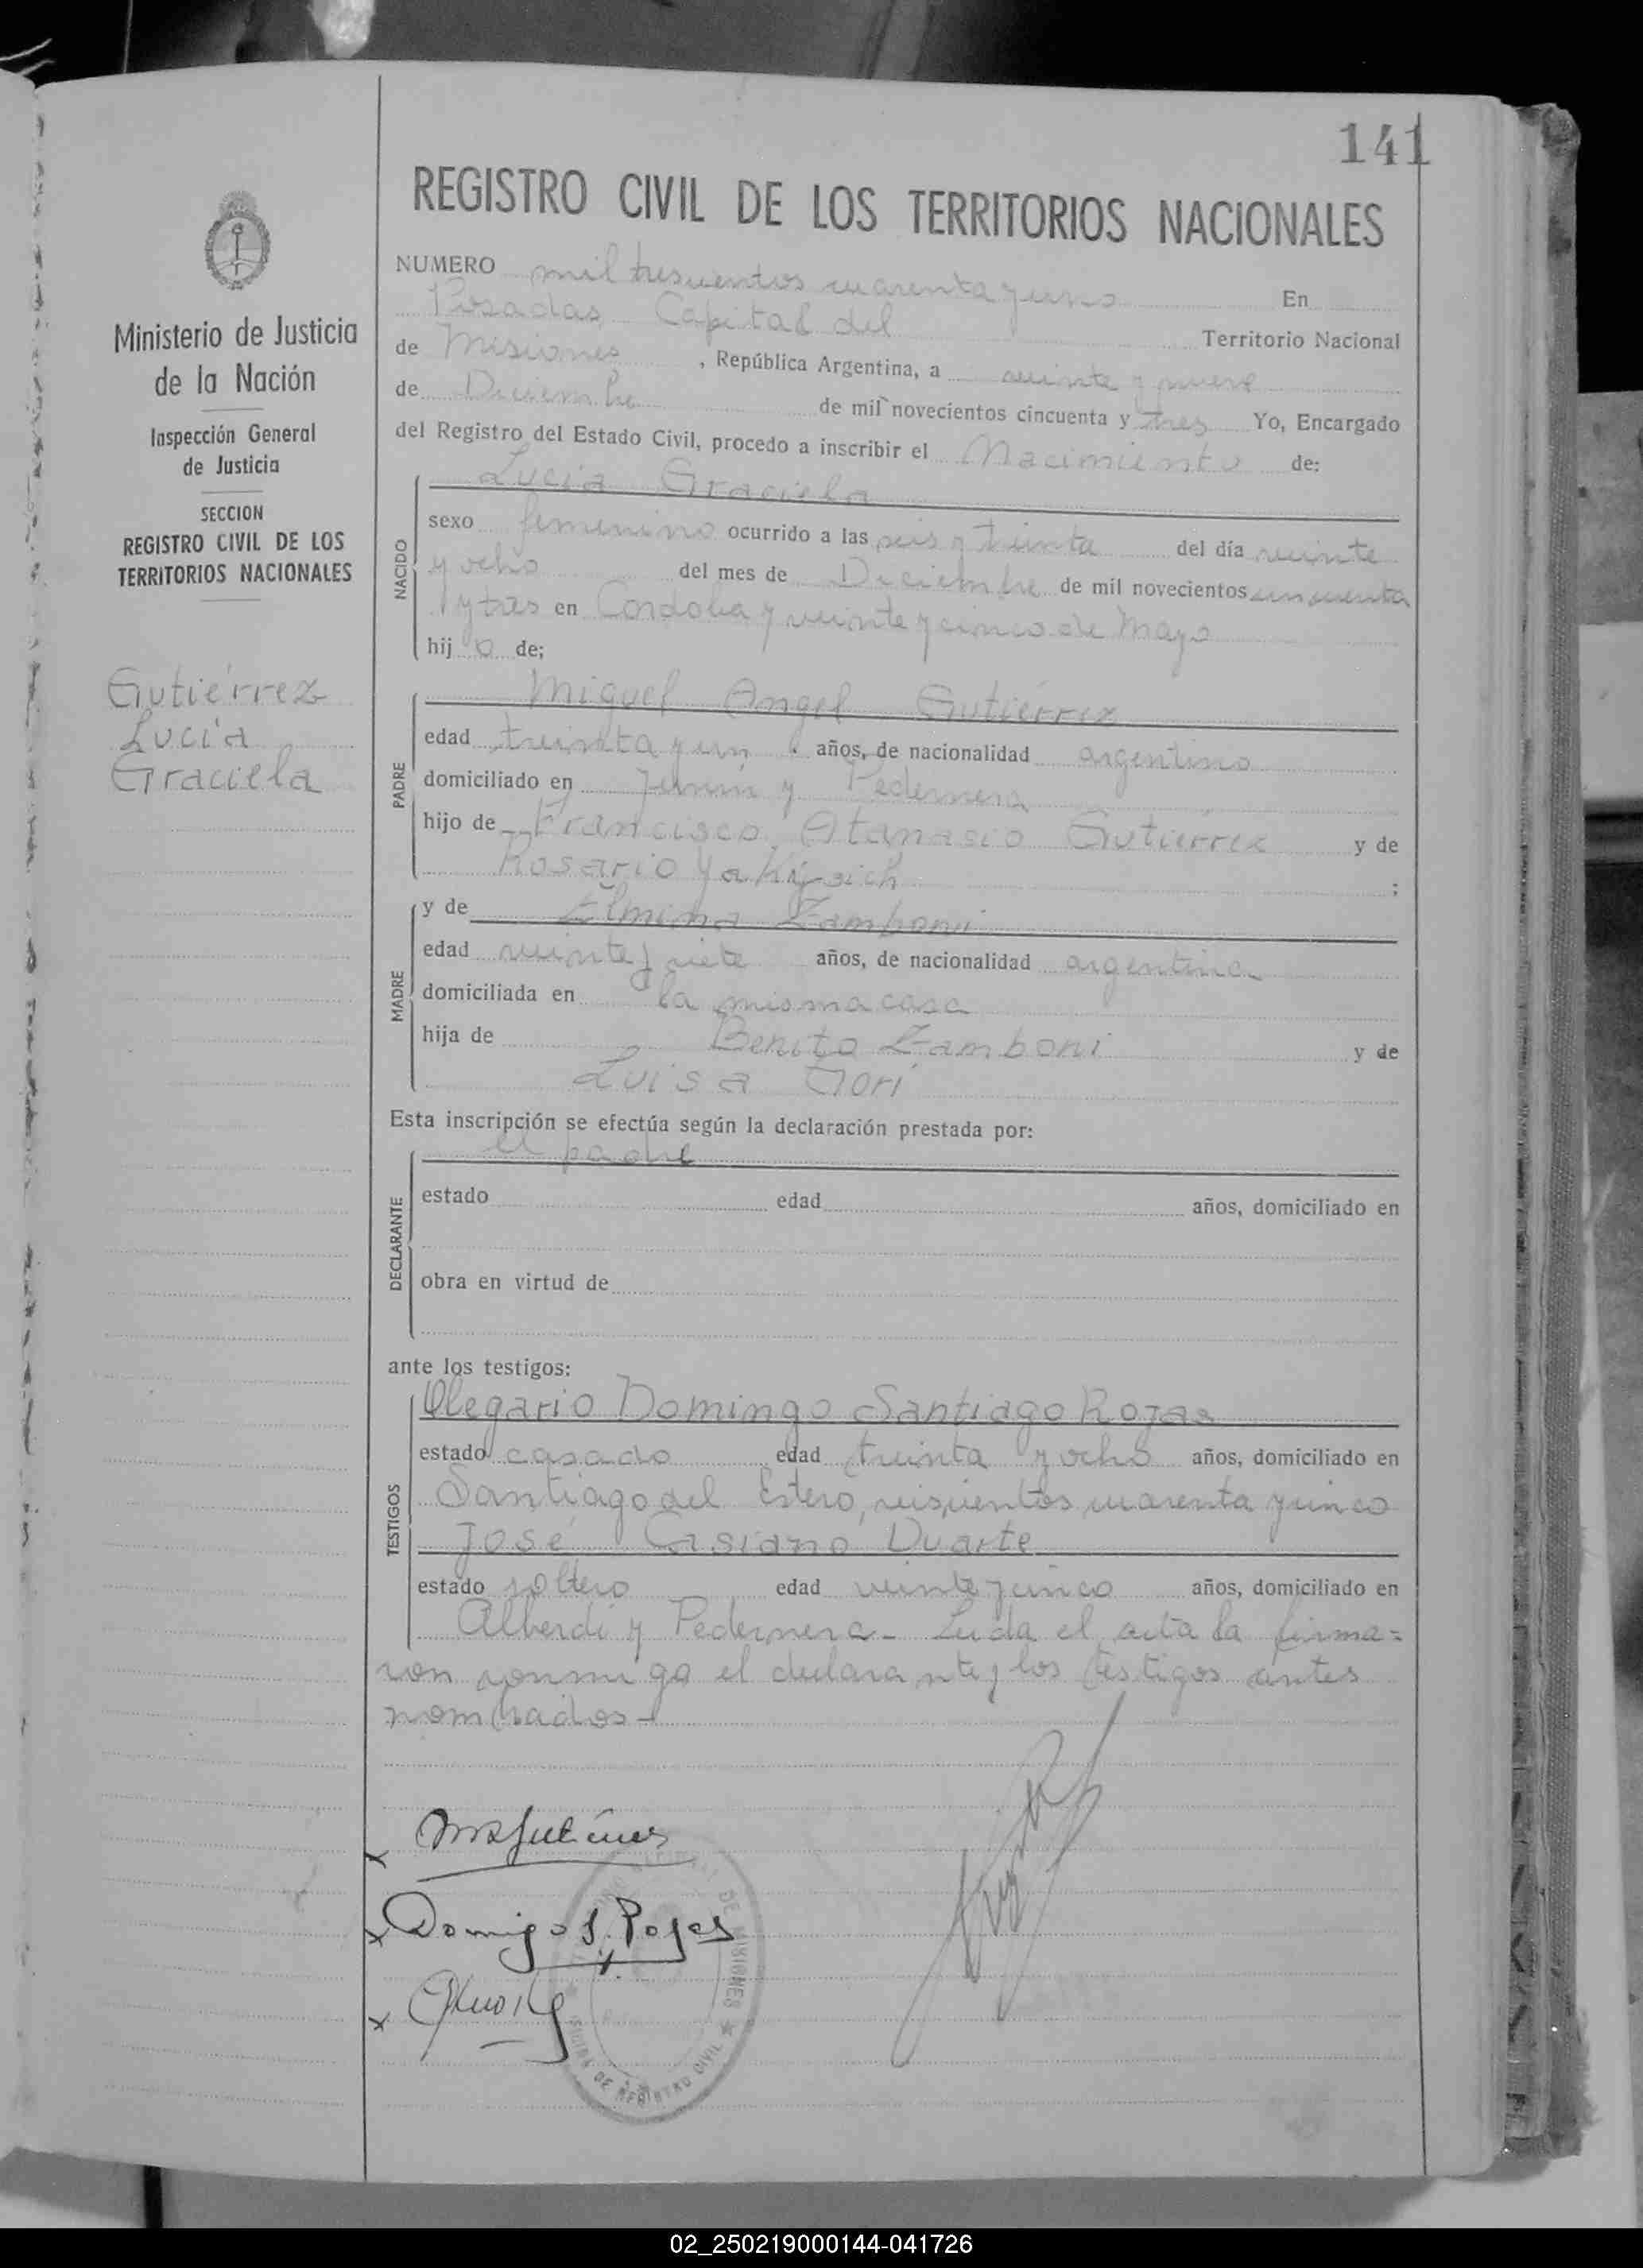 141
REGISTRO CIVIL DE LOS TERRITORIOS NACIONALES
Ministerio de Justicia
de la Nación
Inspección General
de Justicia
SECCION
REGISTRO CIVIL DE LOS
TERRITORIOS NACIONALES
Gutiérrez
Lucía
Graciela
NUMERO mil trescientos cuarenta y uno En
Posadas Capital del Territorio Nacional
de Misiones, República Argentina, a veinte y nueve
de Diciembre de mil novecientos cincuenta y tres Yo, Encargado
del Registro del Estado Civil, procedo a inscribir el Nacimiento de:
Lucía Graciela
NACIDO
sexo femenino ocurrido a las seis y treinta del día veinte
y ocho del mes de Diciembre de mil novecientos cincuenta
y tres en Cordoba y veinte y cinco de Mayo
hij a de;
Miguel Angel Gutiérrez
PADRE
edad treinta y un años, de nacionalidad argentino
domiciliado en Junín y Pedernera
hijo de Francisco Atanasio Gutiérrez y de
Rosario ;
MADRE
y de Elmina Zamboni
edad veinte y siete años, de nacionalidad argentina
domiciliada en la misma casa
hija de Benito Zamboni y de
Luisa Gori
Esta inscripción se efectúa según la declaración prestada por:
el padre
DECLARANTE
estado edad años, domiciliado en
obra en virtud de
ante los testigos:
TESTIGOS
Olegario Domingo Santiago Rojas
estado casado edad treinta y ocho años, domiciliado en
Santiago del Estero, seiscientos cuarenta y cinco
José Casiano Duarte
estado soltero edad veinte y cinco años, domiciliado en
Alberdi y Pedernera - Leída el acta la firma=
ron conmigo el declarante y los testigos antes
nombrados -
Domigo S. Rojas
DE MISIONES
DE REGISTRO CIVIL
02_250219000144-041726